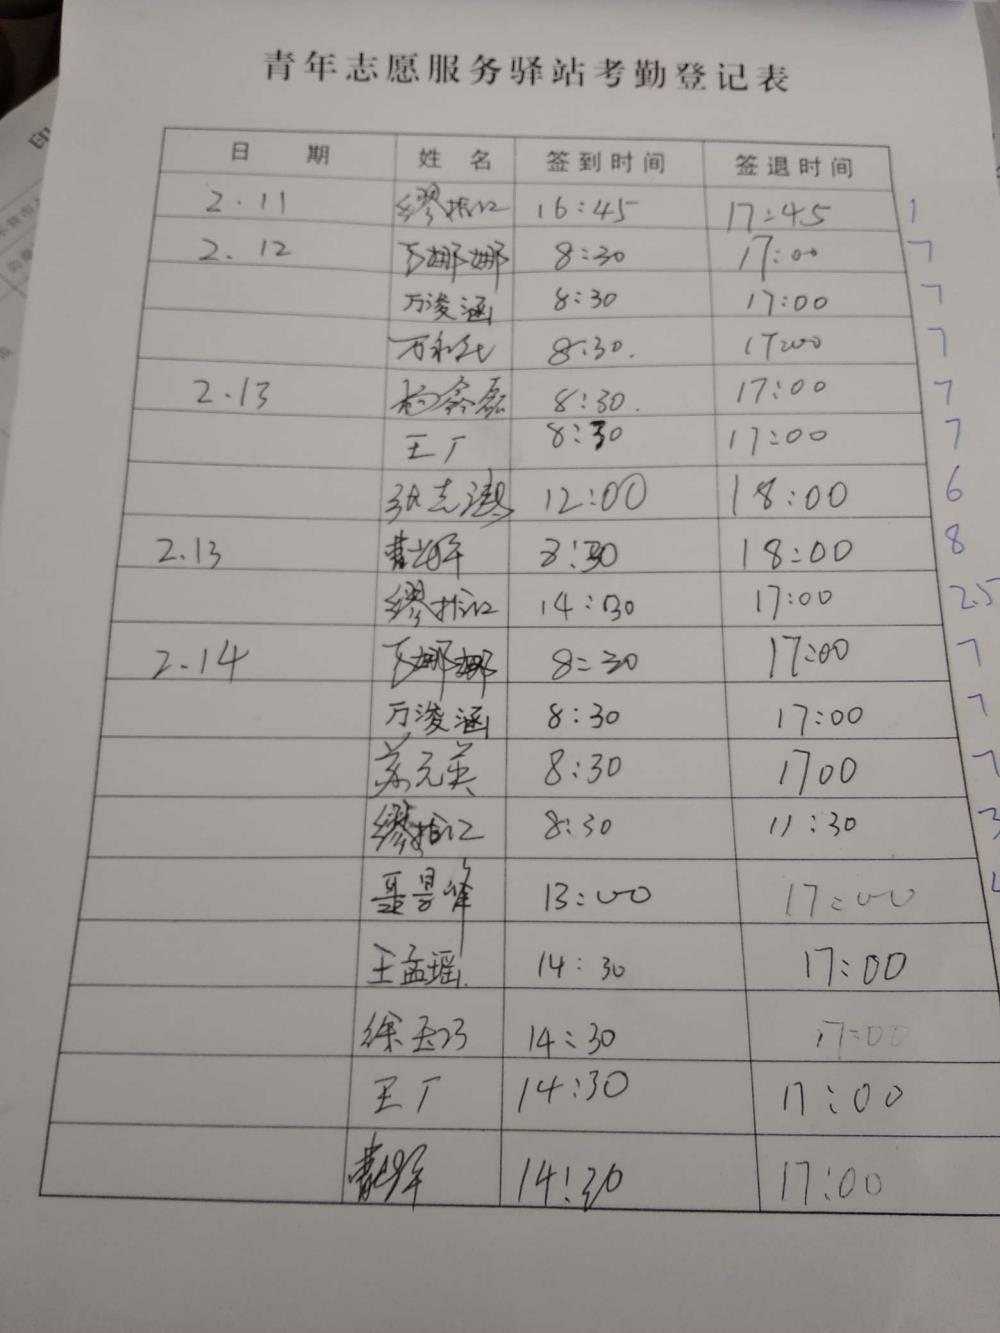 青年志愿服务驿站考勤登记表
日 期 姓 名 签到时间 签退时间
2.11 缪 16:45 17:45 1
2.12 娜娜 8:30 17:00 7
万浚涵 8:30 17:00 7
万 8:30. 17:00 7
2.13 杨鑫磊 8:30. 17:00 7
王厂 8:30 17:00 7
张志 12:00 18:00 6
2.13 曹 8:30 18:00 8
缪 14:30 17:00 2.5
2.14 娜娜 8:30 17:00 7
万浚涵 8:30 17:00 7
苏元英 8:30 1700 7
缪 8:30 11:30 3
聂昱峰 13:00 17:00
王孟瑶 14:30 17:00
徐玉巧 14:30 17:00
王厂 14:30 17:00
曹 14:30 17:00
印